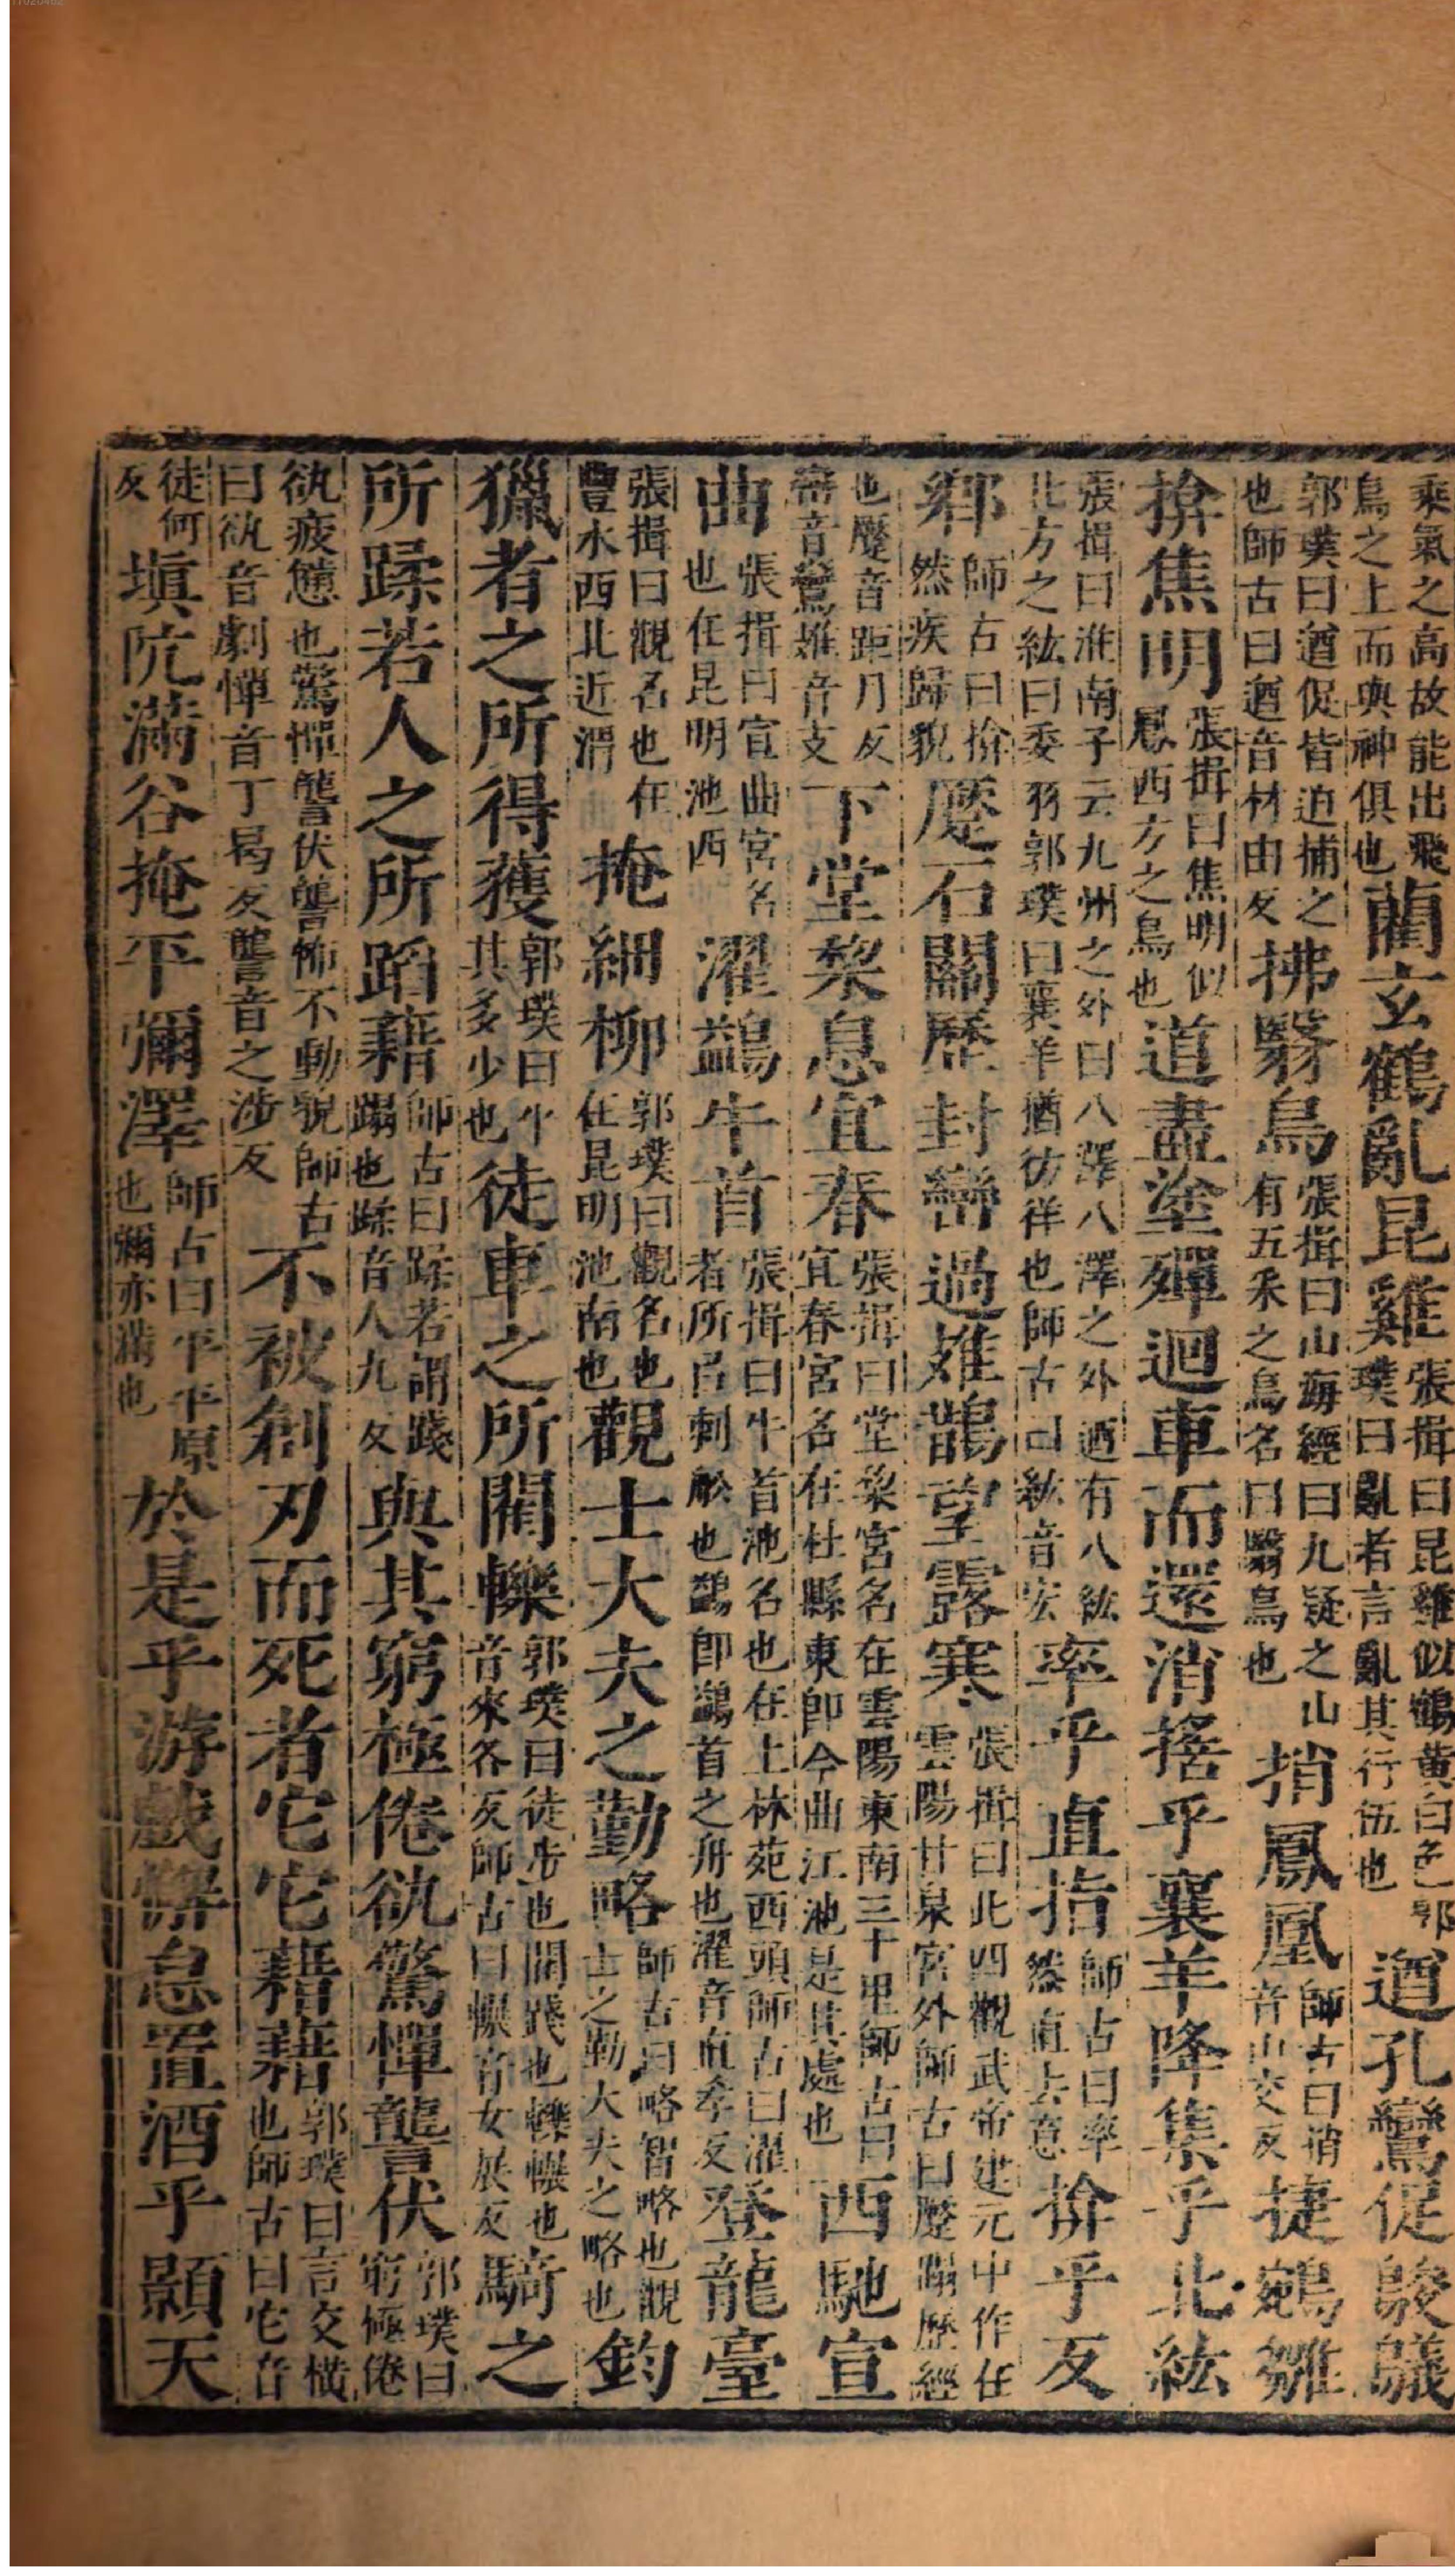 乘氣之高故能出飛鳥之上而與神俱也藺玄鶴亂昆雞張揖曰昆雞似鶴黃白色郭璞曰亂者言亂其行伍也遒孔鸞促鵔鸃
郭璞曰遒促皆迫捕之也師古曰遒音材由反拂翳鳥張揖曰山海經曰九疑之山有五采之鳥名曰翳鳥也捎鳳凰師古曰捎音山交反捷鵷雛
揜焦明張揖曰焦明似鳳西方之鳥也道盡塗殫迴車而還消搖乎襄羊降集乎北紘
張揖曰淮南子云九州之外曰八澤八澤之外迺有八紘北方之紘曰委羽郭璞曰襄羊猶彷徉也師古曰紘音宏率乎直指師古曰率然直去意揜乎反
鄉師古曰揜然疾歸貌蹷石關歷封巒過雄鵲望露寒張揖曰此四觀武帝建元中作在雲陽甘泉宮外師古曰蹷蹋歷經
也蹷音距月反巒音鸞雄音支下堂棃息宜春張揖曰堂棃宮名在雲陽東南三十里師古曰宜春宮名在杜縣東即今曲江池是其處也西馳宣
曲張揖曰宣曲宮名也在昆明池西濯鷁牛首張揖曰牛首池名也在上林苑西頭師古曰濯者所㠯刺船也鷁即鷁首之舟也濯音直孝反登龍臺
張揖曰觀名也在豐水西北近渭掩細柳郭璞曰觀名也在昆明池南也觀士大夫之勤略師古曰略智略也觀士之勤大夫之略也鈞
獵者之所得獲郭璞曰平其多少也徒車之所閵轢郭璞曰徒步也閵踐也轢輾也音來各反師古曰輾音女展反騎之
所蹂若人之所蹈藉師古曰蹂若謂踐蹋也蹂音人九反與其窮極倦㕁驚憚讋伏郭璞曰窮極倦
㕁疲憊也驚憚讋伏讋怖不動貌師古曰㕁音劇憚音丁曷反讋音之涉反不被創刃而死者它它藉藉郭璞曰言交橫也師古曰它音
徒何反塡阬滿谷掩平彌澤師古曰平平原也彌亦滿也於是乎游戲懈怠置酒乎顥天